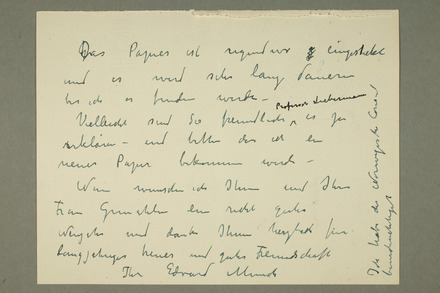 Das Papier ist irgendwo eingesteckt
und es wird sehr lang dauern
bis ich es finden werde –
Vielleicht sind Sie freundlich es zu Professor Liebermann
erklären – und bitten das ich ein
neues Papier bekommen werde –
Wir wünschen ich Ihnen und Ihre
Frau Gemahlin ein recht gutes
und danke Ihnen herzlich für
langjähriges treues und gutes Freundschaft
Ihr Edvard Munch
Ich habe das Norwegische